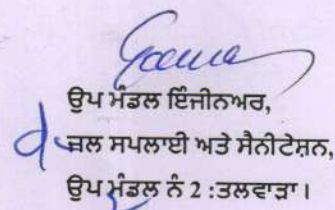 ਉਪ ਮੰਡਲ ਇੰਜੀਨਅਰ,
ਜ਼ਲ ਸਪਲਾਈ ਅਤੇ ਸੈਨੀਟੇਸ਼ਨ,
ਉਪ ਮੰਡਲ ਨੰ 2 :ਤਲਵਾੜਾ।